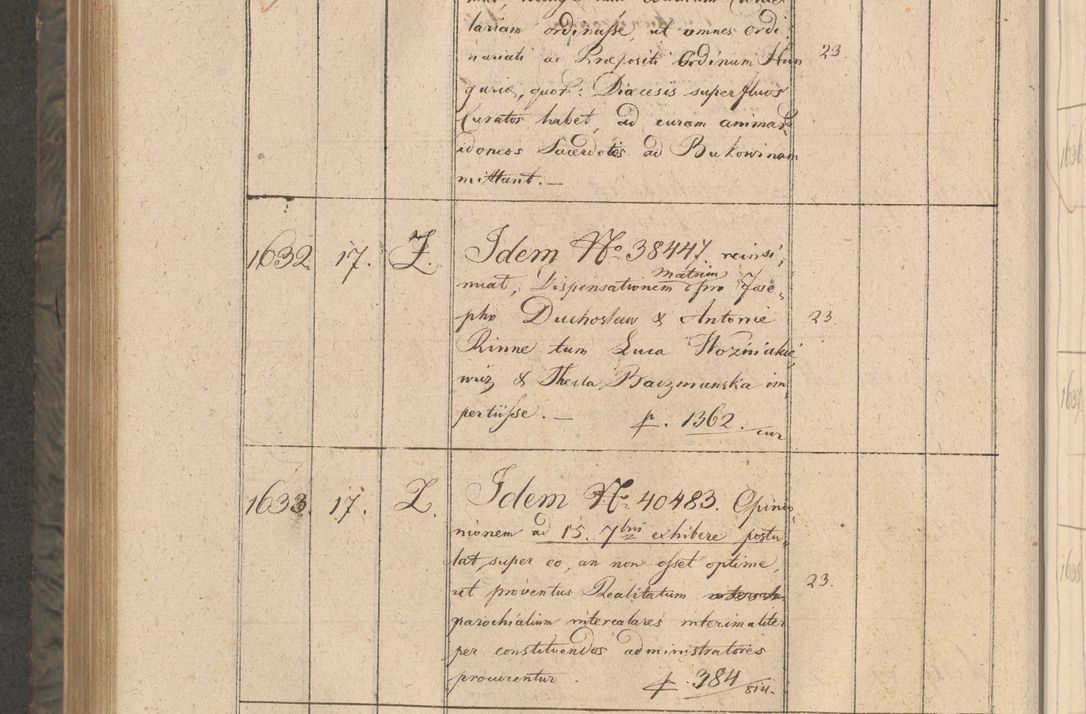 lariam ordinasse, ut omnes ordi
nariati ac Præpositi Ordinum Hun 23
gariæ, quor: Diœcesis superfluos
Curatos habet, ad curam animar
idoneos Sacerdotes ad Bukowinam
mittant. —
1632. 17. Z. Idem No. 38447. reinsi,
matrim
nuat, Dispensationem pro Jose„
pho Duchoslaw & Antonie 23.
Rinne tum Luca Wozniakie
wicz & Thecla Baczmanska im
pertiisse. — f. 1362.
1633. 17. Z. Idem No. 40483. Opini„
nionem ad 15. 7bris exhibere postu„
lat super eo, an non esset optime,
ut proventus Realitatum 23.
parochialium intercalares interimaliter
per constituendos administratores
procurentur. f. 384/814.
1636
1637
1638